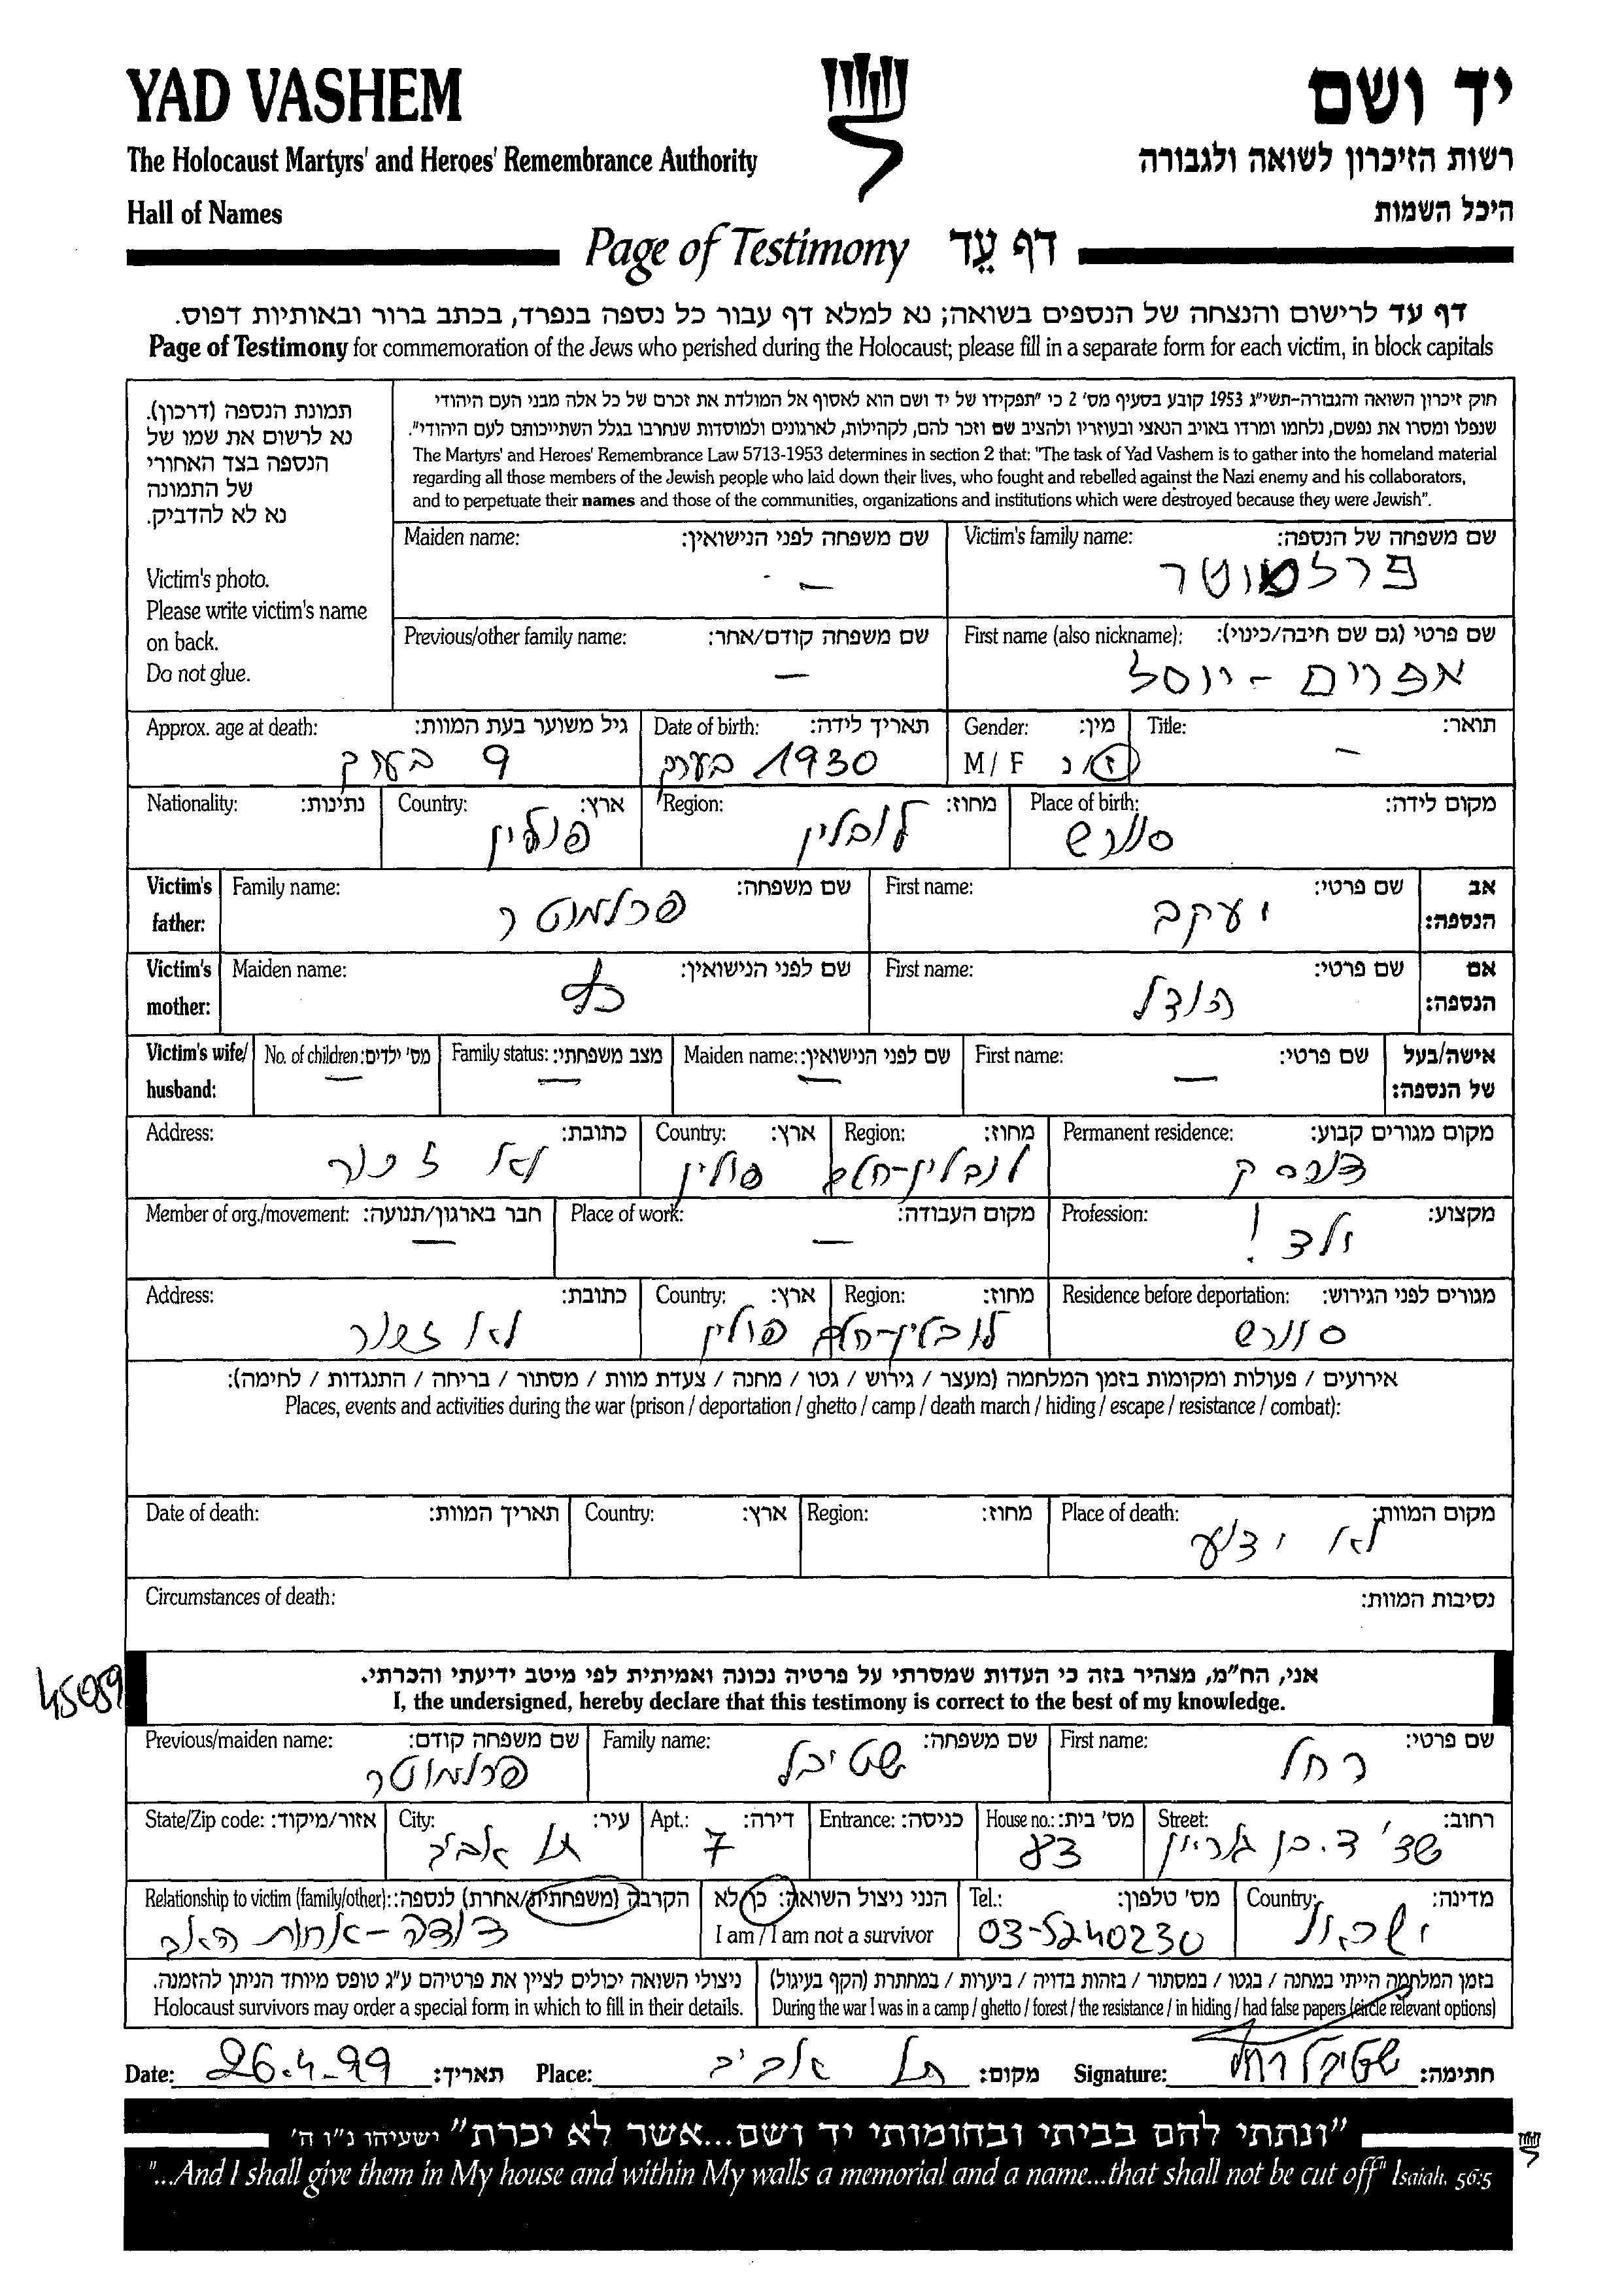 YAD VASHEM
יד ושם
The Holocaust Martyrs' and Heroes' Remembrance Authority
רשות הזיכרון לשואה ולגבורה
Hall of Names
היכל השמות
Page of Testimony דף עֵד
דף עד לרישום והנצחה של הנספים בשואה; נא למלא דף עבור כל נספה בנפרד, בכתב ברור ובאותיות דפוס.
Page of Testimony for commemoration of the Jews who perished during the Holocaust; please fill in a separate form for each victim, in block capitals
תמונת הנספה (דרכון).
נא לרשום את שמו של
הנספה בצד האחורי
של התמונה
נא לא להדביק.
Victim's photo.
Please write victim's name
on back.
Do not glue.
חוק זיכרון השואה והגבורה-תשי"ג 1953 קובע בסעיף מס' 2 כי "תפקידו של יד ושם הוא לאסוף אל המולדת את זכרם של כל אלה מבני העם היהודי
שנפלו ומסרו את נפשם, נלחמו ומרדו באויב הנאצי ובעוזריו ולהציב שם וזכר להם, לקהילות, לארגונים ולמוסדות שנחרבו בגלל השתייכותם לעם היהודי".
The Martyrs' and Heroes' Remembrance Law 5713-1953 determines in section 2 that: "The task of Yad Vashem is to gather into the homeland material
regarding all those members of the Jewish people who laid down their lives, who fought and rebelled against the Nazi enemy and his collaborators,
and to perpetuate their names and those of the communities, organizations and institutions which were destroyed because they were Jewish".
Victim's family name: שם משפחה של הנספה:
פרלמוטר
Maiden name: שם משפחה לפני הנישואין:
–
First name (also nickname): שם פרטי (גם שם חיבה/כינוי):
אפרים - יוסל
Previous/other family name: שם משפחה קודם/אחר:
–
Title: תואר:
–
Gender: מין:
M / F ז / נ
Date of birth: תאריך לידה:
1930 בערך
Approx. age at death: גיל משוער בעת המוות:
9 בערך
Place of birth: מקום לידה:
Region: מחוז:
לובלין
Country: ארץ:
פולין
Nationality: נתינות:
Victim's father: אב הנספה:
First name: שם פרטי:
יעקב
Family name: שם משפחה:
פרלמוטר
Victim's mother: אם הנספה:
First name: שם פרטי:
הודל
Maiden name: שם לפני הנישואין:
Victim's wife/ husband: אישה/בעל של הנספה:
First name: שם פרטי:
–
Maiden name: שם לפני הנישואין:
–
Family status: מצב משפחתי:
–
No. of children: מס' ילדים:
–
Permanent residence: מקום מגורים קבוע:
Region: מחוז:
לובלין-חלם
Country: ארץ:
פולין
Address: כתובת:
לא זכור
Profession: מקצוע:
ילד!
Place of work: מקום העבודה:
–
Member of org./movement: חבר בארגון/תנועה:
–
Residence before deportation: מגורים לפני הגירוש:
Region: מחוז:
לובלין-חלם
Country: ארץ:
פולין
Address: כתובת:
לא זכור
אירועים / פעולות ומקומות בזמן המלחמה (מעצר / גירוש / גטו / מחנה / צעדת מוות / מסתור / בריחה / התנגדות / לחימה):
Places, events and activities during the war (prison / deportation / ghetto / camp / death march / hiding / escape / resistance / combat):
Place of death: מקום המוות:
לא ידוע
Region: מחוז:
Country: ארץ:
Date of death: תאריך המוות:
Circumstances of death: נסיבות המוות:
45059
אני, הח"מ, מצהיר בזה כי העדות שמסרתי על פרטיה נכונה ואמיתית לפי מיטב ידיעתי והכרתי.
I, the undersigned, hereby declare that this testimony is correct to the best of my knowledge.
First name: שם פרטי:
רחל
Family name: שם משפחה:
שטיבל
Previous/maiden name: שם משפחה קודם:
פרלמוטר
Street: רחוב:
שד' ד. בן גוריון
House no.: מס' בית:
83
Entrance: כניסה:
Apt.: דירה:
7
City: עיר:
תל אביב
State/Zip code: אזור/מיקוד:
Country: מדינה:
ישראל
Tel.: מס' טלפון:
03-5240230
הנני ניצול השואה: כן/לא
I am / I am not a survivor
Relationship to victim (family/other): הקרבה (משפחתית/אחרת) לנספה:
דודה - אחות האב
בזמן המלחמה הייתי במחנה / בגטו / במסתור / בזהות בדויה / ביערות / במחתרת (הקף בעיגול)
During the war I was in a camp / ghetto / forest / the resistance / in hiding / had false papers (circle relevant options)
ניצולי השואה יכולים לציין את פרטיהם ע"ג טופס מיוחד הניתן להזמנה.
Holocaust survivors may order a special form in which to fill in their details.
Date: 26.4-99 תאריך: Place: תל אביב מקום: Signature: שטיבל רחל חתימה:
"ונתתי להם בביתי ובחומותי יד ושם...אשר לא יכרת" ישעיהו נ"ו ה'
"...And I shall give them in My house and within My walls a memorial and a name...that shall not be cut off" Isaiah, 56:5